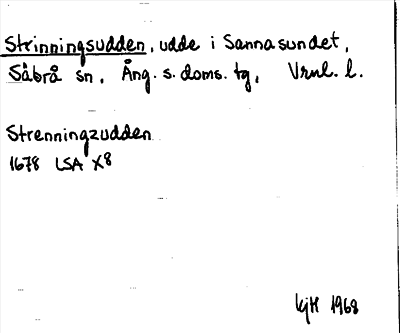 Strinningsudden, udde i Sannasundet,
Säbrå sn, Ång. s. doms. tg, Vrnl. l.
Strenningzudden
1678 LSA X8
KjH 1968